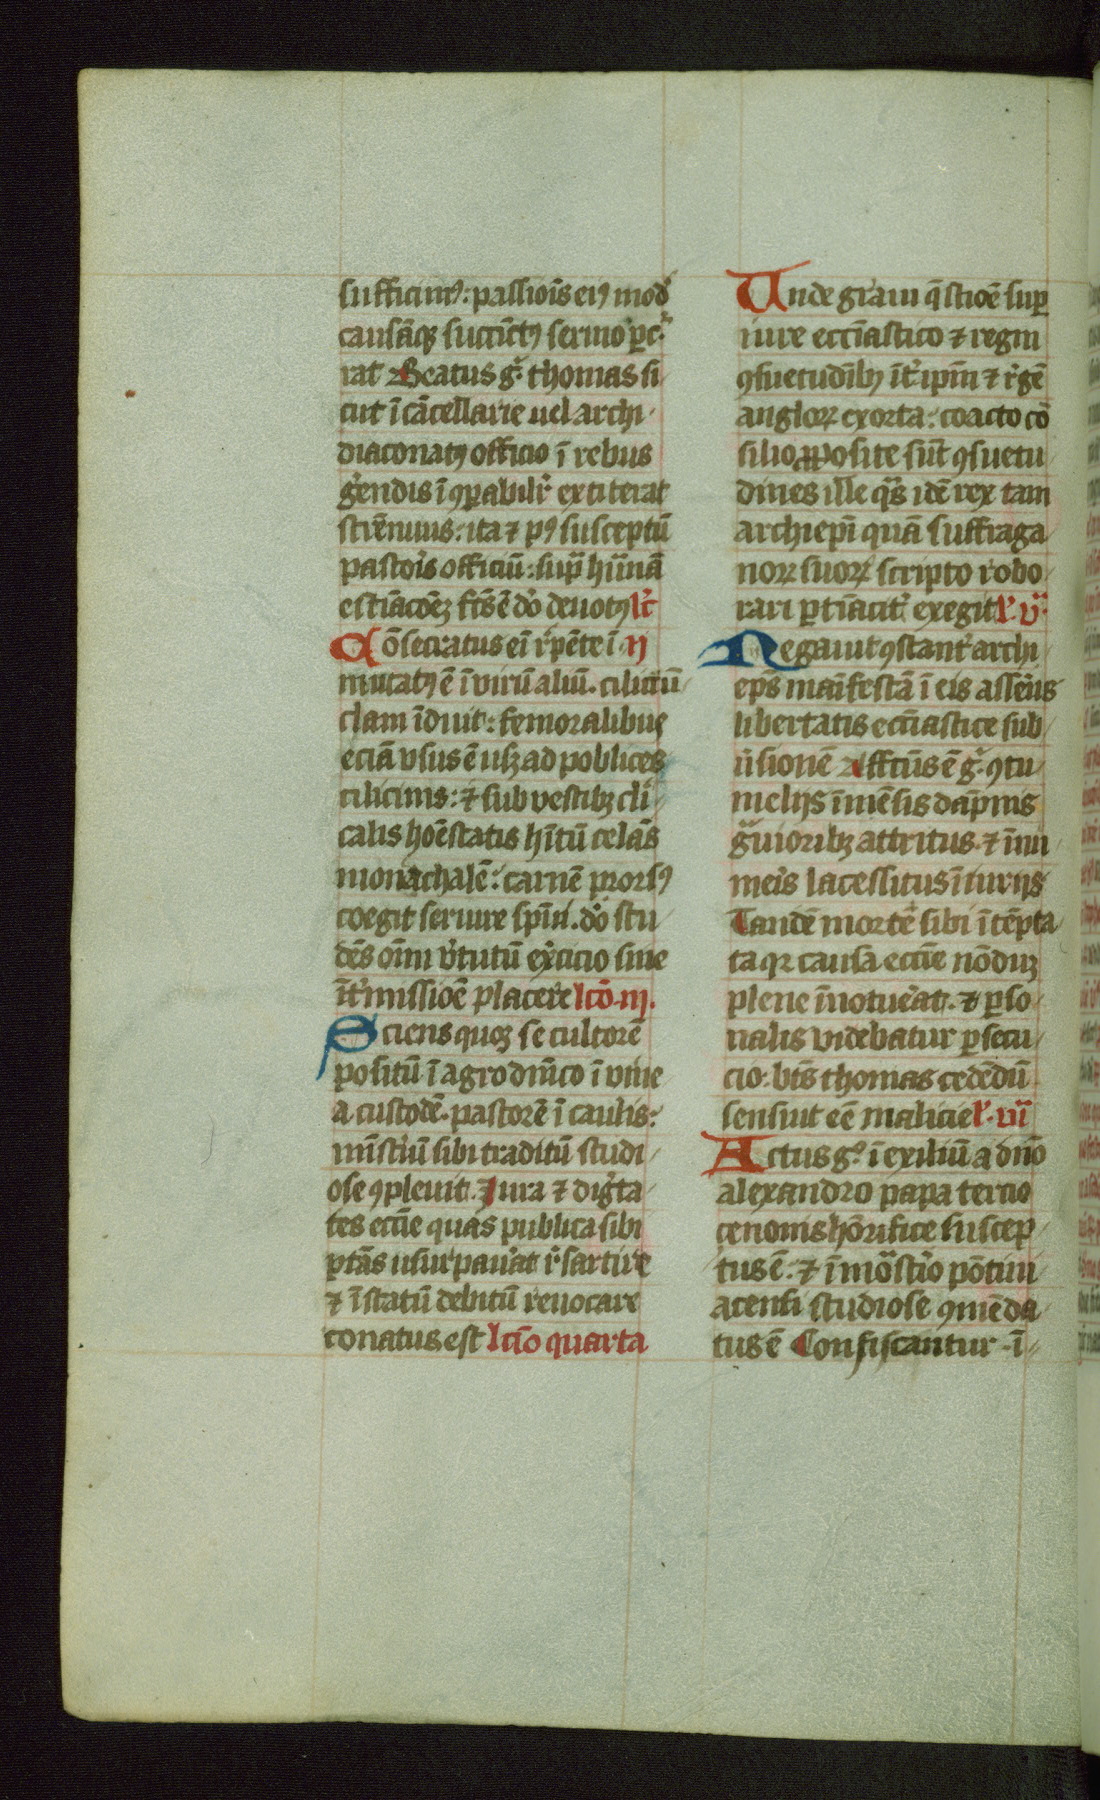 sufficim9: passiois ei9 mod
causāq; succīct9 sermo ꝑc̄
rat Beatus g̊ thomas si
cut ī cācellarie uel archi
diaconat9 officio ī rebus
gerendis ī9ꝑabilr̄ extiterat
strēnuus: ita ⁊ p9 susceptū
pastoris officiū: supͣ hūnā
estīacōeꝫ fc̄s ē do deuot9 lc̄
Cōsecratus eī rͤpēte ī ij
mutat9 ē ī virū aliū. ciliciū
clam īduit: femoralibus
eciā vsus ē usqꝫ ad poblices
cilicinis: ⁊ sub vestibꝫ cli
calis hoēstatis hītū celās
monachalē: carnē prors9
coegit seruire spīui. do stu
dēs oīm v̓tutū exͥcicio sine
īt̓missiōe placere lcō. iij.
Sciens quoqꝫ se cultorē
positū ī agro dn̄ico ī vine
a custodē. pastorē ī caulis:
mīst̓iū sibi traditū studi
ose 9pleuit. Jura ⁊ dig̅ta
tes eccīe quas publica sibi
ptās usurpau̓at rͤsartire
⁊ ī statū debitū reuocare
conatus est lcīo quarta
Unde graui q̄stiōe suꝑ
iure ecciāstico ⁊ regni
9suetudīibꝫ īt̓ ipm̄ ⁊ r̓gē
angloꝝ exorta: coacto cō
silio ꝓposite sūt 9suetu
dines ille qͣs idē rex tam
archiepī quā suffraga
noꝝ suoꝝ scripto robo
rari ꝑtīacit̓ exegit lͦ. v̄
Negauit 9stant̓ archi
ep̄s manifestā ī eis asserēs
libertatis ecciāstice sub
u̓sionē Affc̄us ē g̊ 9tu
melijs īmēsis dāpnis
gͣuioribꝫ attritus ⁊ īnu
meris lacessitus īiurijs
Tandē mortē sibi ītēpta
ta qꝛ causa eccīe nōduꝫ
plene īnotuerat. ⁊ ꝑso
nalis videbatur ꝑsecu
cio: bt̄s thomas cedēdū
sensiuit eē malicie lͦ. vi
Actus g̊ ī exiliū a dn̄o
alexandro papa tercio
cenonis honorifice suscep
tus ē. ⁊ ī mōast̓io pōtini
acensi studiose 9mēda
tus ē Confiscantur ī